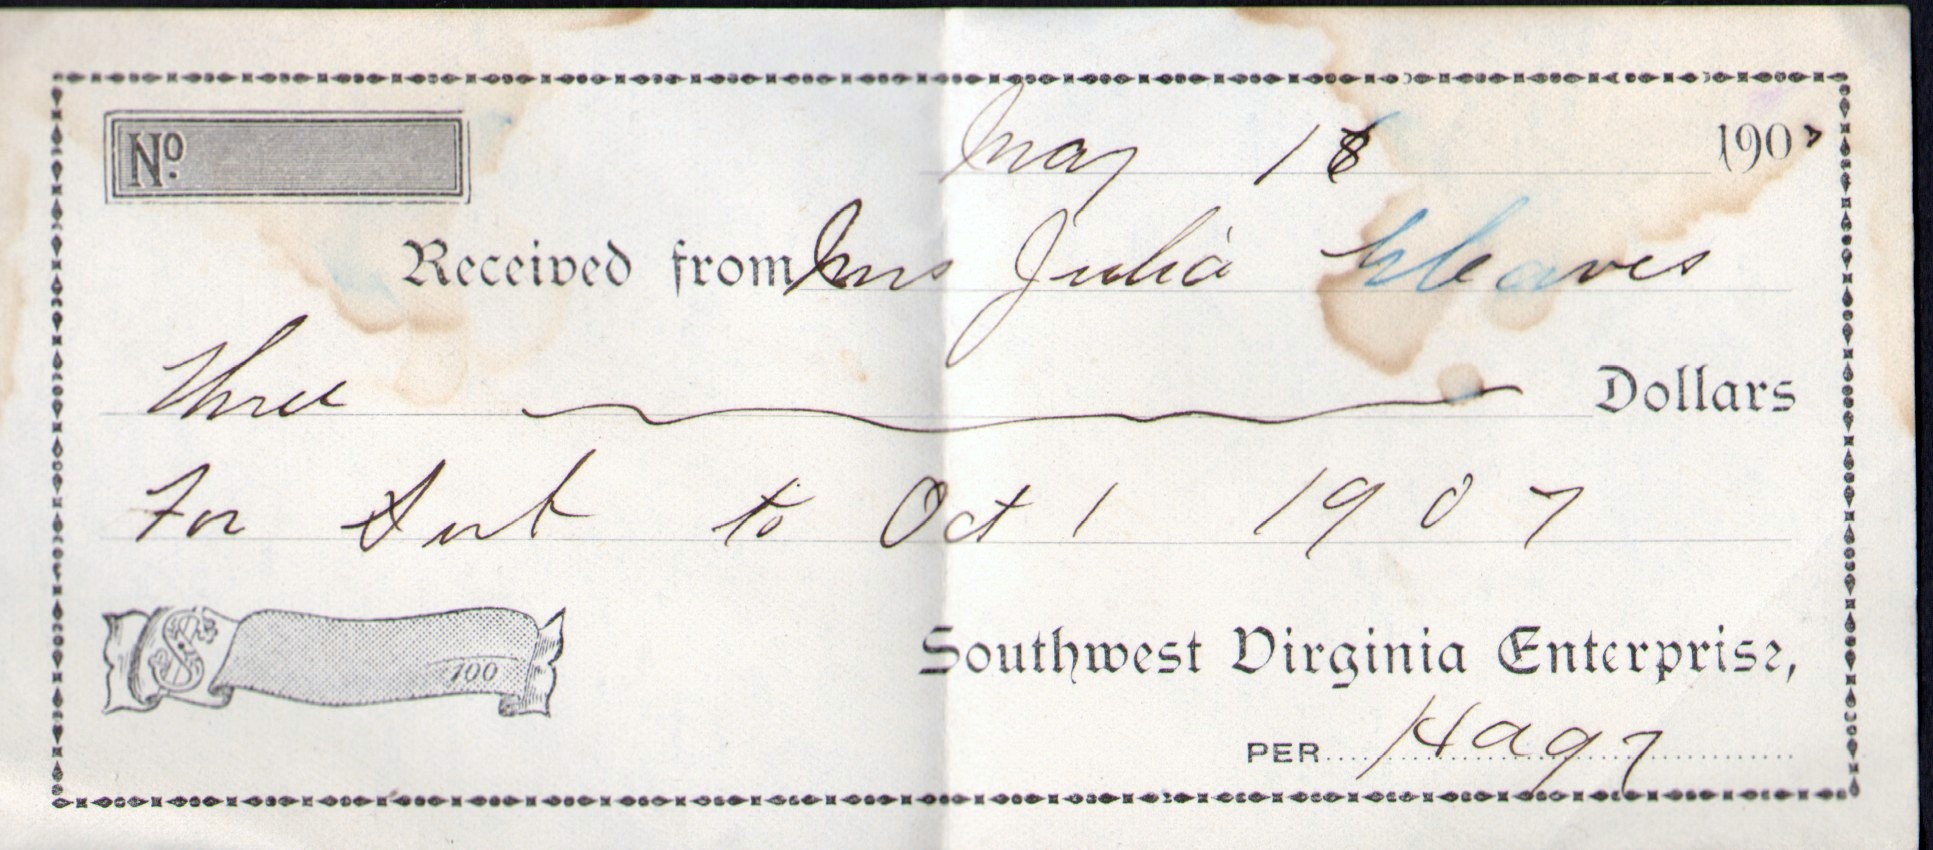 No. May 18 1907
Received from Mrs Julia Cleaves
Three Dollars
For Sub to Oct 1 1907
100 Southwest Virginia Enterprise,
PER Hagy